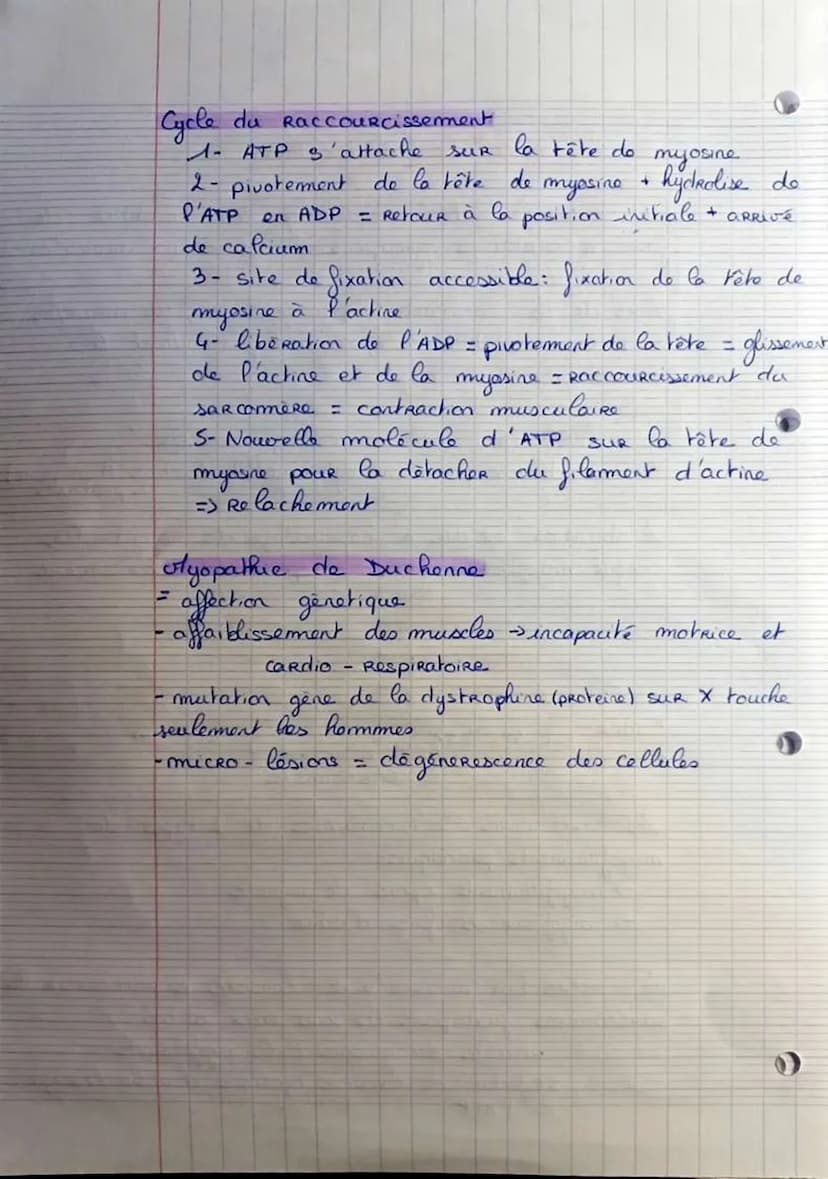 Cycle du Raccourcissement
1- ATP s'attache sur la tête de myosine
2- pivotement de la tête de myosine + hydrolise de
l'ATP en ADP = Retour à la position initiale + arrivé
de calcium
3- site de fixation accessible : fixation de la tête de
myosine à l'actine
4- libération de l'ADP = pivotement de la tête = glissement
de l'actine et de la myosine = raccourcissement du
sarcomère = contraction musculaire
5- Nouvelle molécule d'ATP sur la tête de
myosine pour la détacher du filament d'actine
=> Relachement
Myopathie de Duchenne
= affection génetique
- affaiblissement des muscles → incapacité motrice et
cardio - Respiratoire
- mutation gène de la dystrophine (proteine) sur X touche
seulement les hommes
- micro - lésions = dégénerescence des cellules